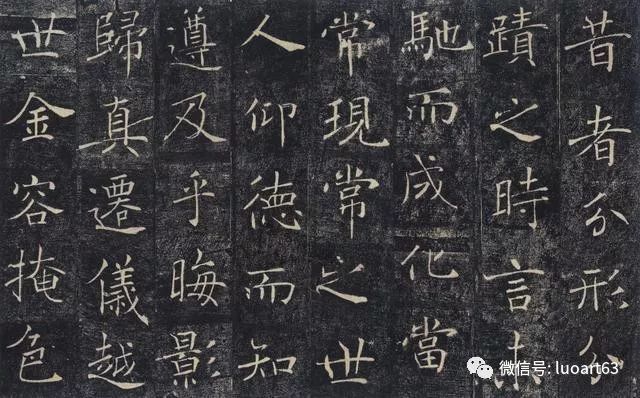 昔者分形分
蹟之時言未
馳而成化當
常現常之世
人仰德而知
遵及乎晦影
歸真遷儀越
世金容掩色
微信号: luoart63